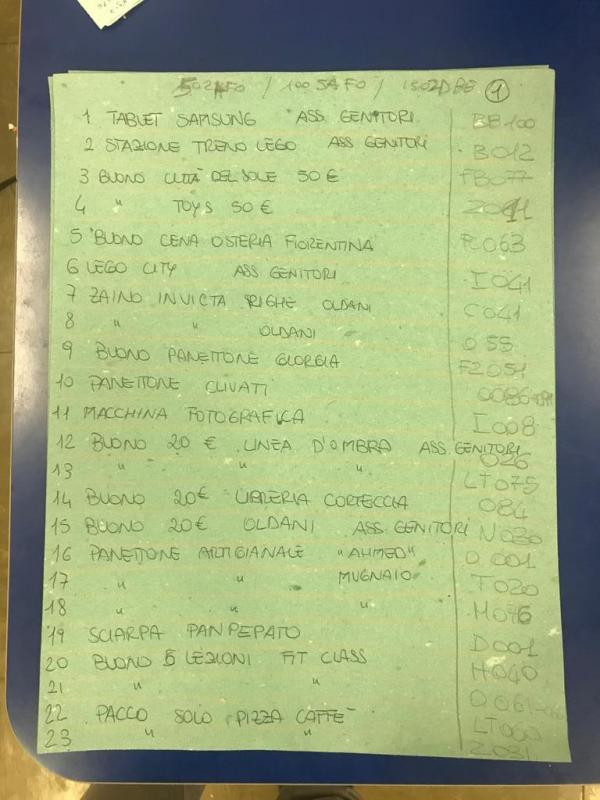 502AFO / 1005AFO / 1502DBE 1
1 TABLET SAMSUNG ASS. GENITORI BB100
2 STAZIONE TRENO LEGO ASS GENITORI B012
3 BUONO CITTÀ DEL SOLE 50 € FB077
4 " TOYS 50 €
5 BUONO CENA OSTERIA FIORENTINA R063
6 LEGO CITY ASS GENITORI I041
7 ZAINO INVICTA RIGHE OLDANI C041
8 " " OLDANI 055
9 BUONO PANETTONE GIORGIA FZ051
10 PANETTONE CLIVATI
11 MACCHINA FOTOGRAFICA I008
12 BUONO 20 € LINEA D'OMBRA ASS GENITORI 026
13 " " " LT075
14 BUONO 20€ LIBRERIA CORTECCIA 084
15 BUONO 20€ OLDANI ASS GENITORI N030
16 PANETTONE ARTIGIANALE "AHMED" O 001
17 " " MUGNAIO T020
18 " " " M096
19 SCIARPA PANPEPATO D001
20 BUONO 5 LEZIONI FIT CLASS H040
21 " "
22 PACCO SOLO PIZZA CAFFÈ LT060
23 " " Z031